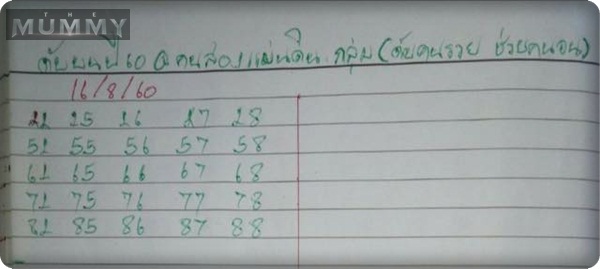 THE
MUMMY
คนสองแผ่นดิน กลุ่ม (คนรวย ช่วยคนจน)
16/8/60
21 25 26 27 28
51 55 56 57 58
61 65 66 67 68
71 75 76 77 78
81 85 86 87 88